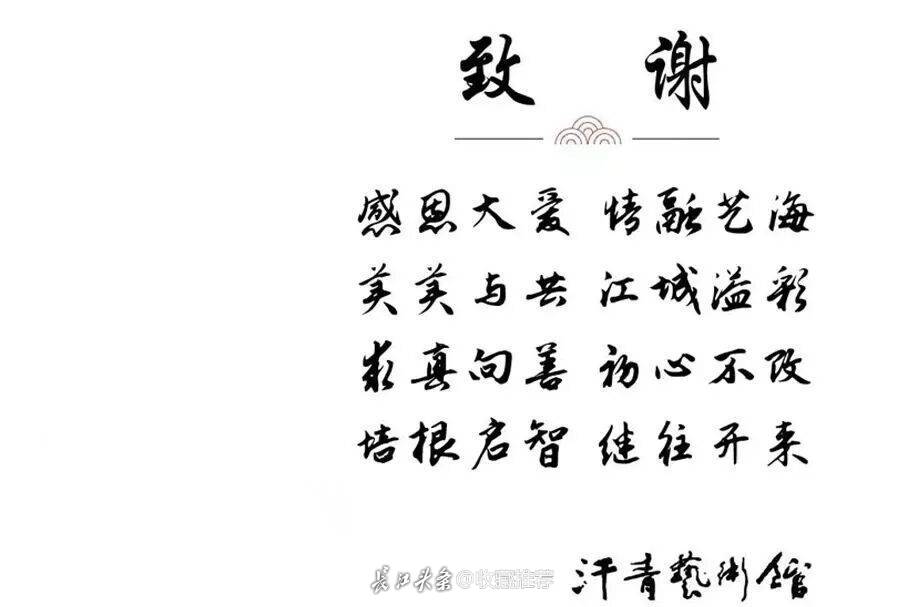 致 谢
感恩大爱 情融艺海
美美与共 江城溢彩
求真向善 初心不改
培根启智 继往开来
汗青藝術館
長江头条@收藏推荐